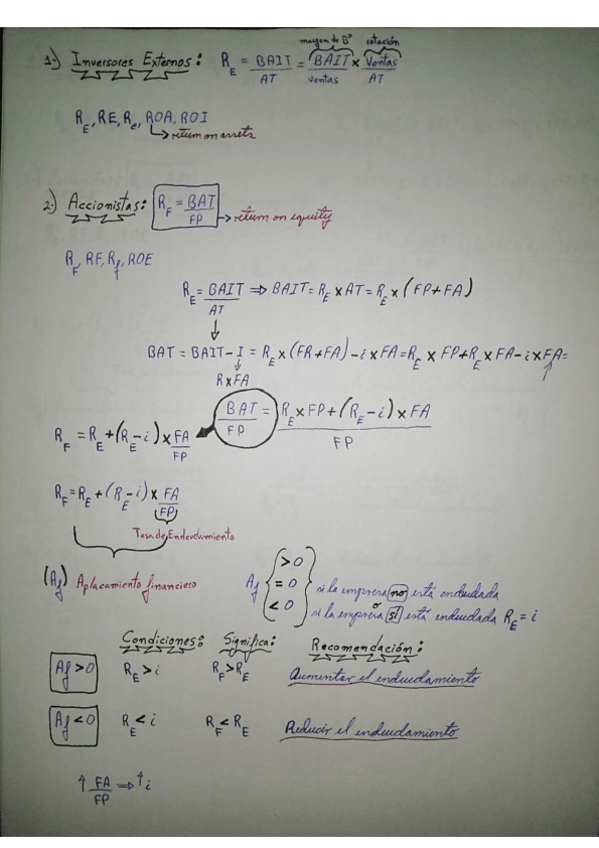 margen de Bº rotación
1.) Inversores Externos: R_E = BAIT/AT = BAIT/ventas x Ventas/AT
R_E, RE, Re, ROA, ROI
↳ return on assets
2.) Accionistas: R_F = BAT/FP → return on equity
R_F, RF, Rf, ROE
R_E = BAIT/AT ⇒ BAIT = R_E x AT = R_E x (FP + FA)
BAT = BAIT - I = R_E x (FP + FA) - i x FA = R_E x FP + R_E x FA - i x FA =
R x FA
BAT/FP = R_E x FP + (R_E - i) x FA / FP
R_F = R_E + (R_E - i) x FA/FP
R_F = R_E + (R_E - i) x FA/FP
Tasa de Endeudamiento
(Af) Aplacamiento financiero
Af { > 0
= 0 si la empresa no está endeudada
o
< 0 si la empresa sí está endeudada R_E = i
Condiciones: Significa: Recomendación:
Af > 0 R_E > i R_F > R_E Aumentar el endeudamiento
Af < 0 R_E < i R_F < R_E Reducir el endeudamiento
↑ FA/FP ⇒ ↑ i